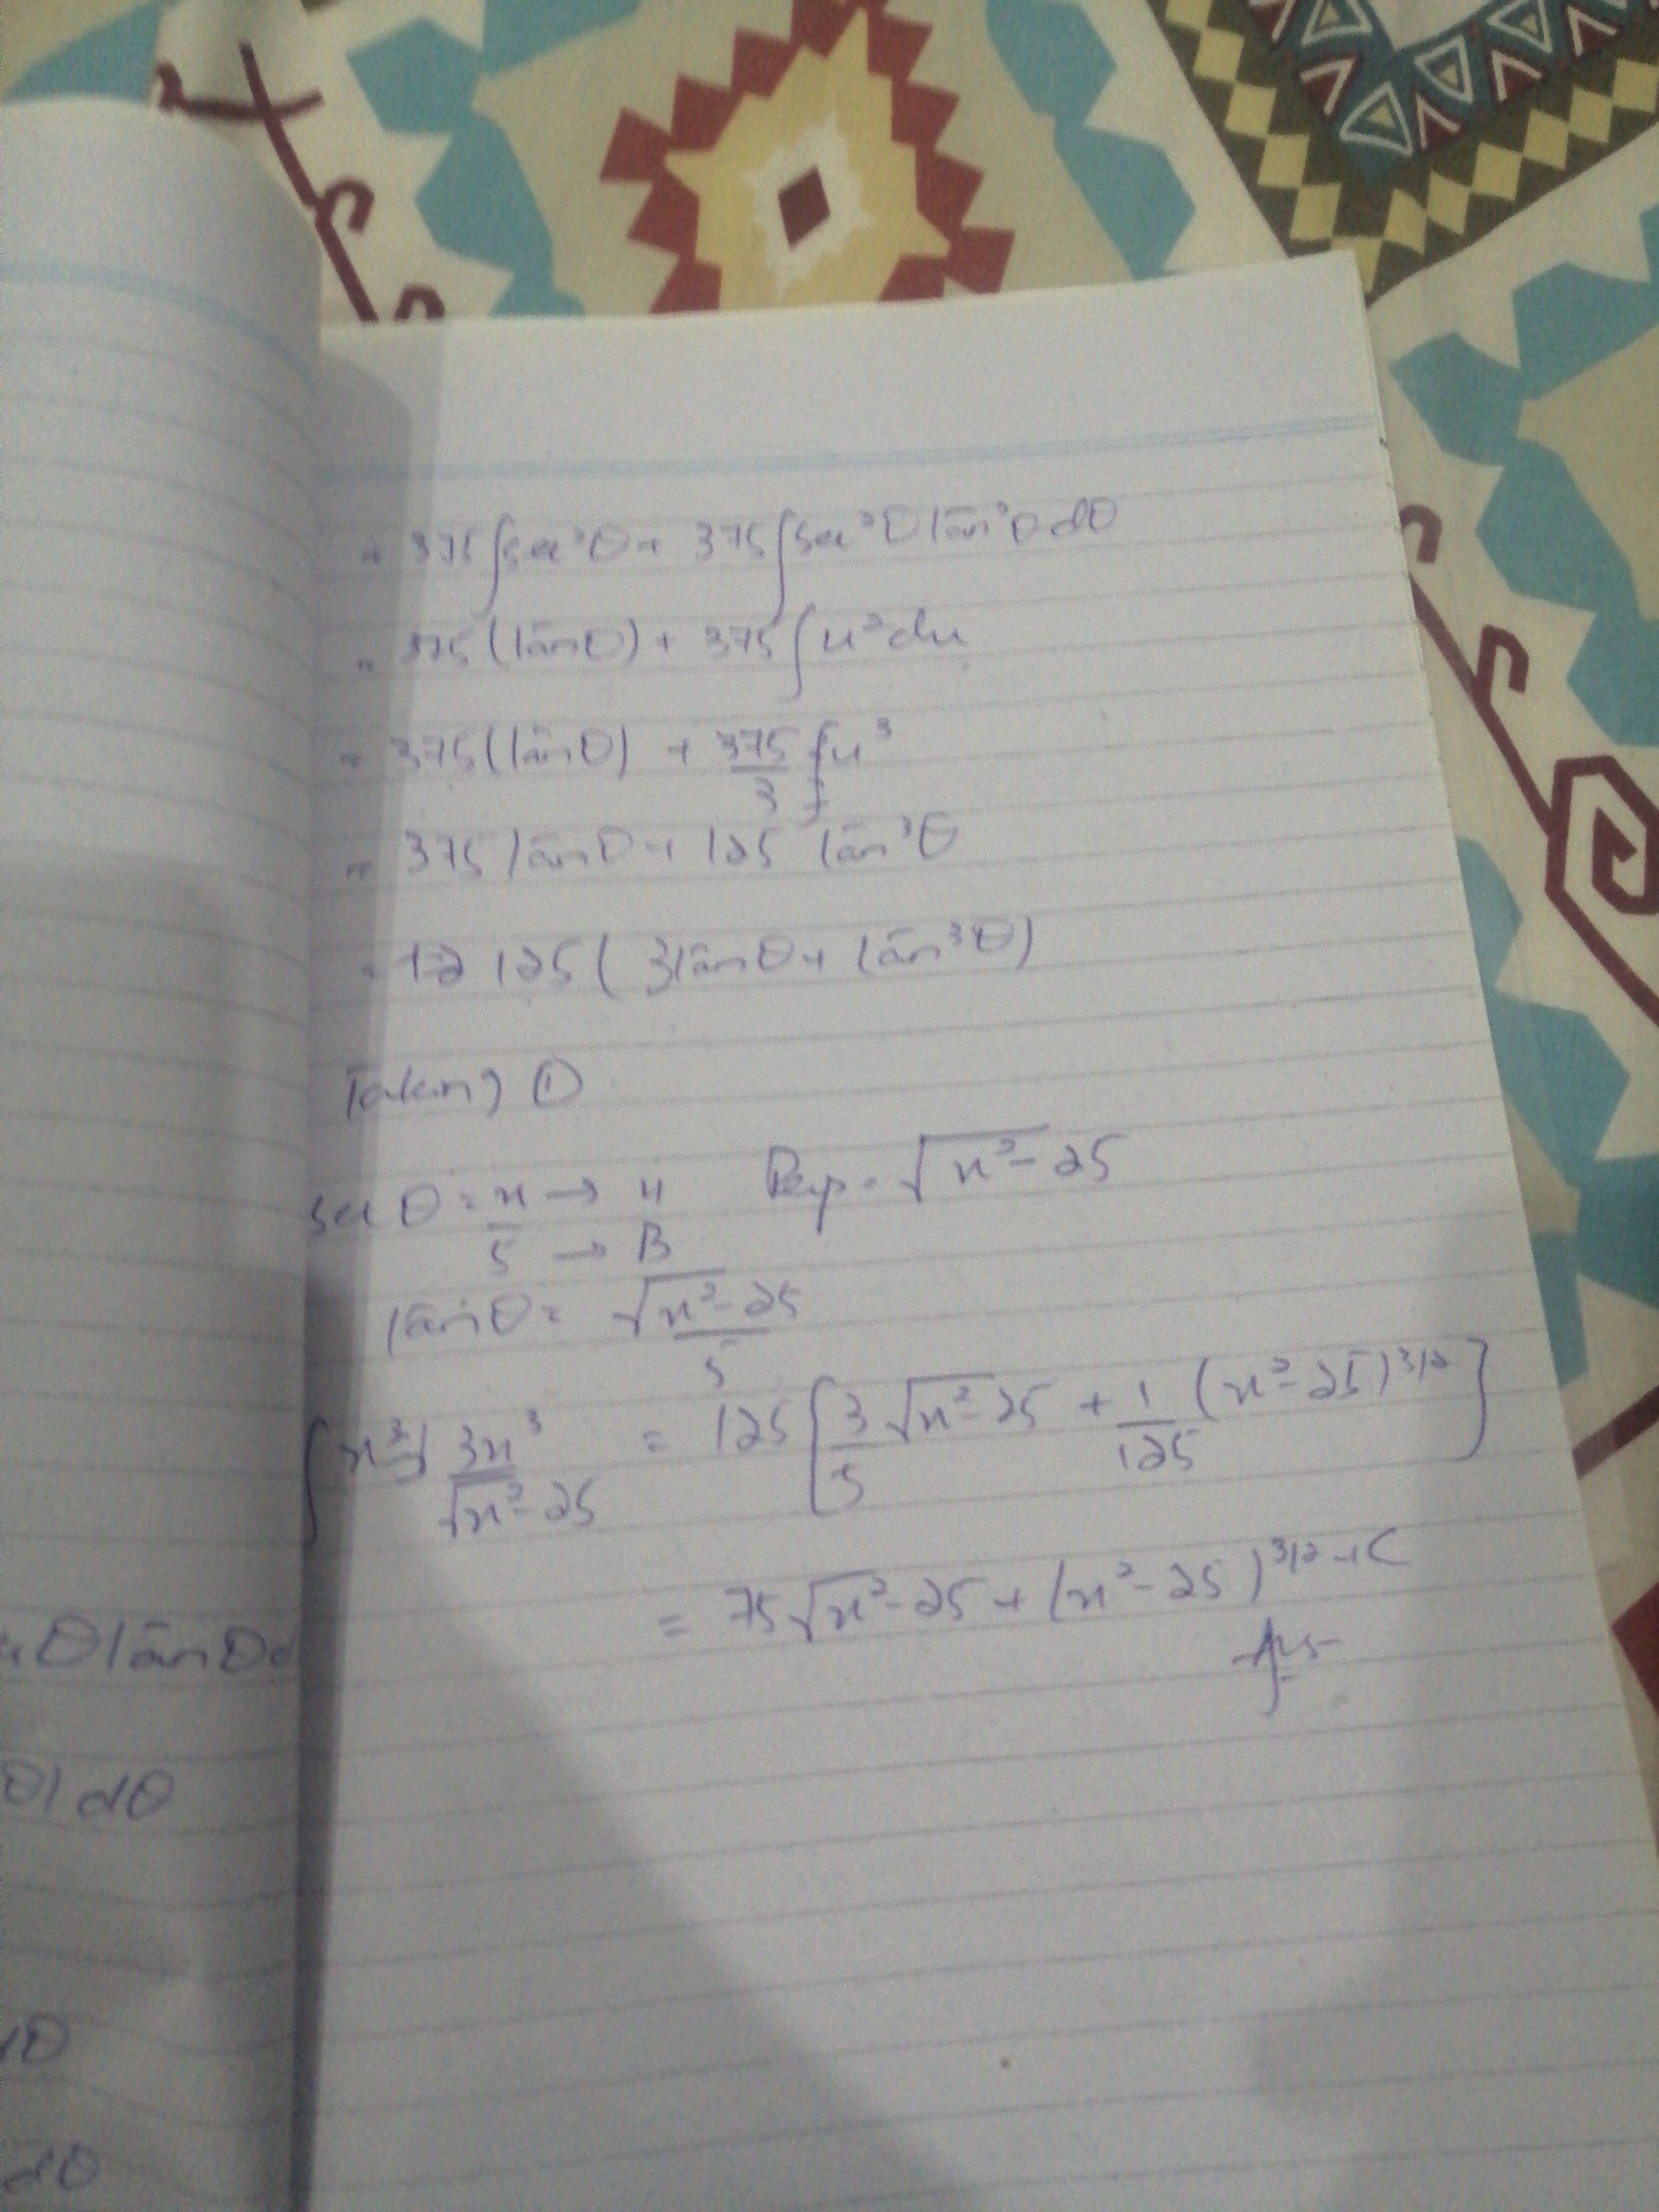 = 375∫sec²θ + 375∫sec²θ tan²θ dθ
= 375(tanθ) + 375∫u²du
= 375(tanθ) + 375/3 u³
= 375 tanθ + 125 tan³θ
= 125(3tanθ + tan³θ)
Taking ①
secθ = x/5 → H → B Perp = √x²-25
tanθ = √x²-25/5
∫ 3x³/√x²-25 = 125[3/5 √x²-25 + 1/125 (x²-25)^3/2]
= 75√x²-25 + (x²-25)^3/2 + C
Ans
θ tanθ d
θ) dθ
dθ
dθ